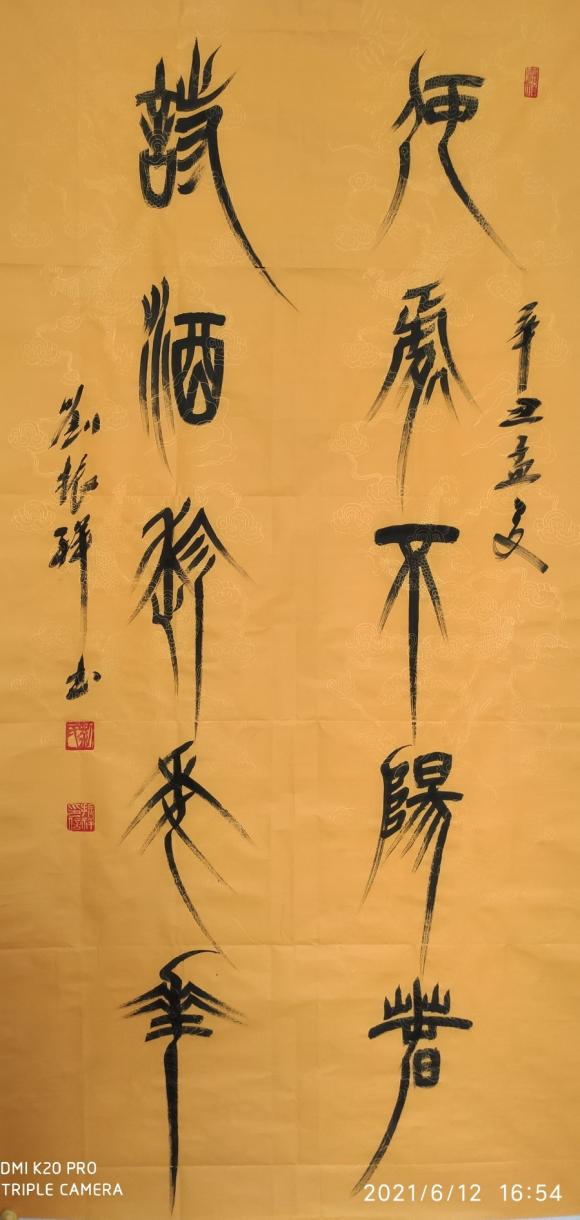 辛丑孟夏
何處不陽春
詩酒趁年華
劉振祥書
DMI K20 PRO
TRIPLE CAMERA
2021/6/12 16:54